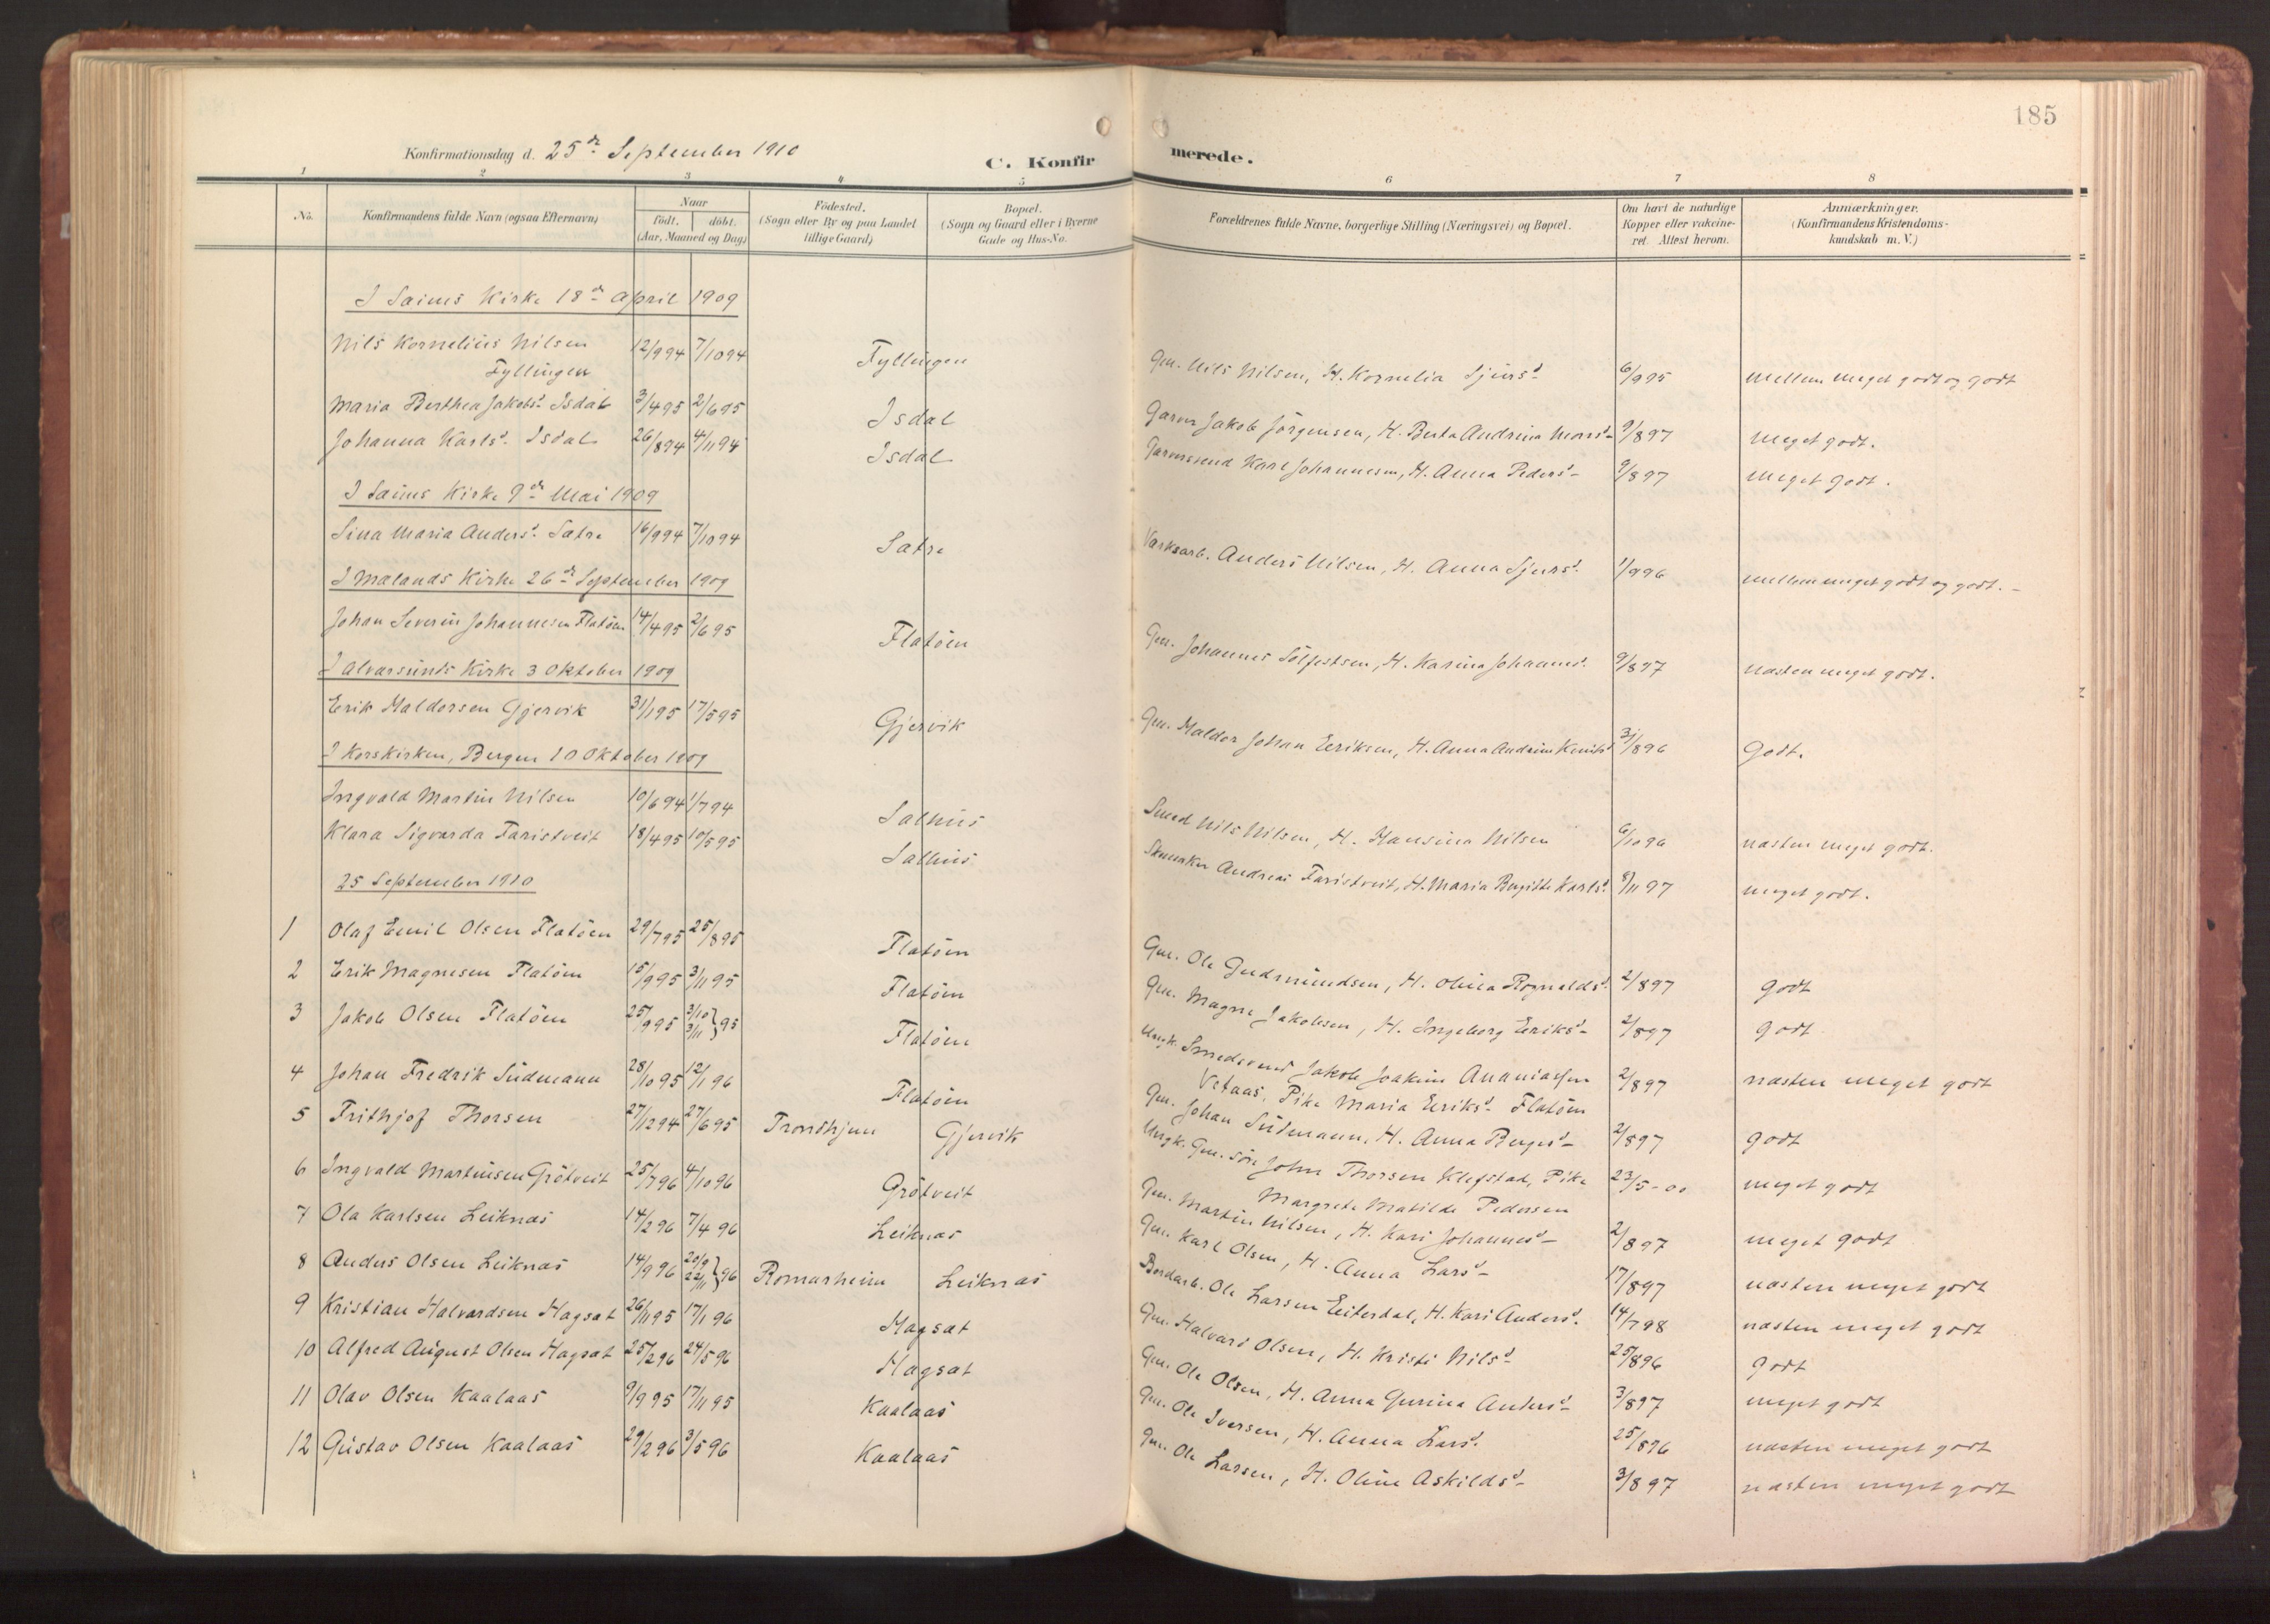 185
Konfirmationsdag d. 25de September 1910
C. Konfir
merede.
1 2 3 4 5 6 7 8
No.
Konfirmandens fulde Navn (ogsaa Efternavn)
Naar
födt. döbt.
(Aar, Maaned og Dag)
Födested.
(Sogn eller By og paa Landet
tillige Gaard)
Bopæl.
(Sogn og Gaard eller i Byerne
Gade og Hus-No.
Forældrenes fulde Navne, borgerlige Stilling (Næringsvei) og Bopæl.
Om havt de naturlige
Kopper eller vakcine-
ret. Attest herom.
Anmærkninger.
(Konfirmandens Kristendoms-
kundskab m. V.)
I Sæims Kirke 18de April 1909
Nils Kornelius Nilsen
Fyllingen 12/9 94 7/10 94 Fyllingen Gm. Nils Nilsen, H. Kornelia Sjursd. 6/9 95 mellem meget godt og godt
Maria Berthea Jakobsd. Isdal 3/4 95 2/6 95 Isdal Jakob Jörgensen, H. Berta Andrina Monsd. 9/8 97 meget godt.
Johanna Karlsd. Isdal 26/8 94 4/11 94 Isdal Karl Johannesen, H. Anna Pedersd. 9/8 97 meget godt.
I Sæims Kirke 9de Mai 1909
Sina Maria Andersd. Sætre 16/9 94 7/10 94 Sætre Værksarb. Anders Nilsen, H. Anna Sjursd. 1/9 96 mellem meget godt og godt.
I Mælands Kirke 26de September 1909
Johan Severin Johannesen Flatöen 14/4 95 2/6 95 Flatöen Gm. Johannes Sölfestsen, H. Karina Johannesd. 9/8 97 næsten meget godt.
I Alværsunds Kirke 3 Oktober 1909
Erik Haldorsen Gjervik 31/1 95 17/5 95 Gjervik Gm. Haldor Johan Eriksen, H. Anna Andrina 31/8 96 Godt.
I Korskirken, Bergen 10 Oktober 1909
Ingvald Martin Nilsen 10/6 94 1/7 94 Salhus Smed Nils Nilsen, H. Hansina Nilsen 6/10 96 næsten meget godt.
Klara Sigvarda Faristveit 18/4 95 10/5 95 Salhus Skomaker Andreas Faristveit, H. Maria Birgitte Karlsd. 8/11 97 meget godt.
25 September 1910
1 Olaf Emil Olsen Flatöen 29/7 95 25/8 95 Flatöen Gm. Ole Gudmundsen, H. Olina Rognaldsd. 2/8 97 godt
2 Erik Magnesen Flatöen 15/9 95 3/11 95 Flatöen Gm. Magne Jakobsen, H. Ingeborg Eriksd. 2/8 97 godt
3 Jakob Olsen Flatöen 25/9 95 3/10 3/11 } 95 Flatöen Ungk. Smedsvend Jakob Joakim Ananiassen
Vetaas, Pike Maria Eriksd. Flatöen 2/8 97 næsten meget godt
4 Johan Fredrik Südmann 28/10 95 12/1 96 Flatöen Gm. Johan Südmann, H. Anna Bergesd. 2/8 97 godt
5 Frithjof Thorsen 27/12 94 27/6 95 Trondhjem Gjervik Ungk. Gm. sön John Thorsen Klefstad, Pike
Margrete Matilde Pedersen 23/5-00 meget godt
6 Ingvald Martinusen Grötveit 25/7 96 4/10 96 Grötveit Gm. Martin Nilsen, H. Kari Johannesd. 2/8 97 meget godt
7 Ola Karlsen Leiknæs 14/2 96 7/4 96 Leiknæs Gm. Karl Olsen, H. Anna Larsd. 17/8 97 næsten meget godt
8 Anders Olsen Leiknæs 14/9 96 20/9 22/11 } 96 Romarheim Leiknæs Bordarb. Ole Larsen Eiterdal, H. Kari Andersd. 14/7 98 næsten meget godt
9 Kristian Halvardsen Hagsæt 26/11 95 17/1 96 Hagsæt Gm. Halvard Olsen, H. Kristi Nilsd. 25/8 96 godt
10 Alfred August Olsen Hagsæt 25/2 96 24/5 96 Hagsæt Gm. Ole Olsen, H. Anna Gurina Andersd. 3/8 97 meget godt
11 Olav Olsen Kaalaas 9/9 95 17/11 95 Kaalaas Gm. Ole Iversen, H. Anna Larsd. 25/8 96 næsten meget godt
12 Gustav Olsen Kaalaas 29/2 96 3/5 96 Kaalaas Gm. Ole Larsen, H. Oline Askildsd. 3/8 97 næsten meget godt